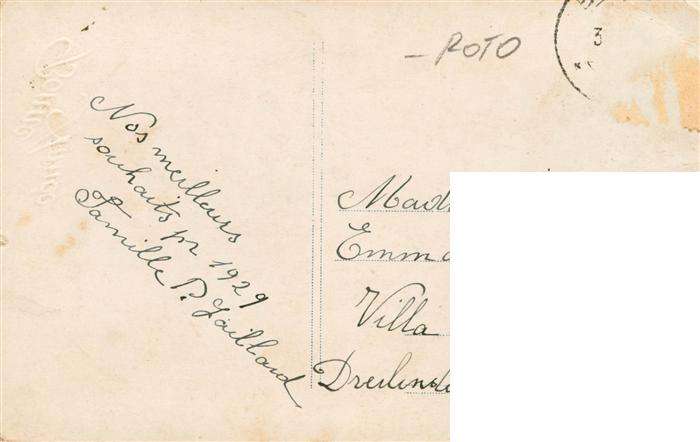 ROTO
3
Nos meilleurs
souhaits pr 1929
Famille P. Jaillard
Mad
Emma
Villa
Dreilind